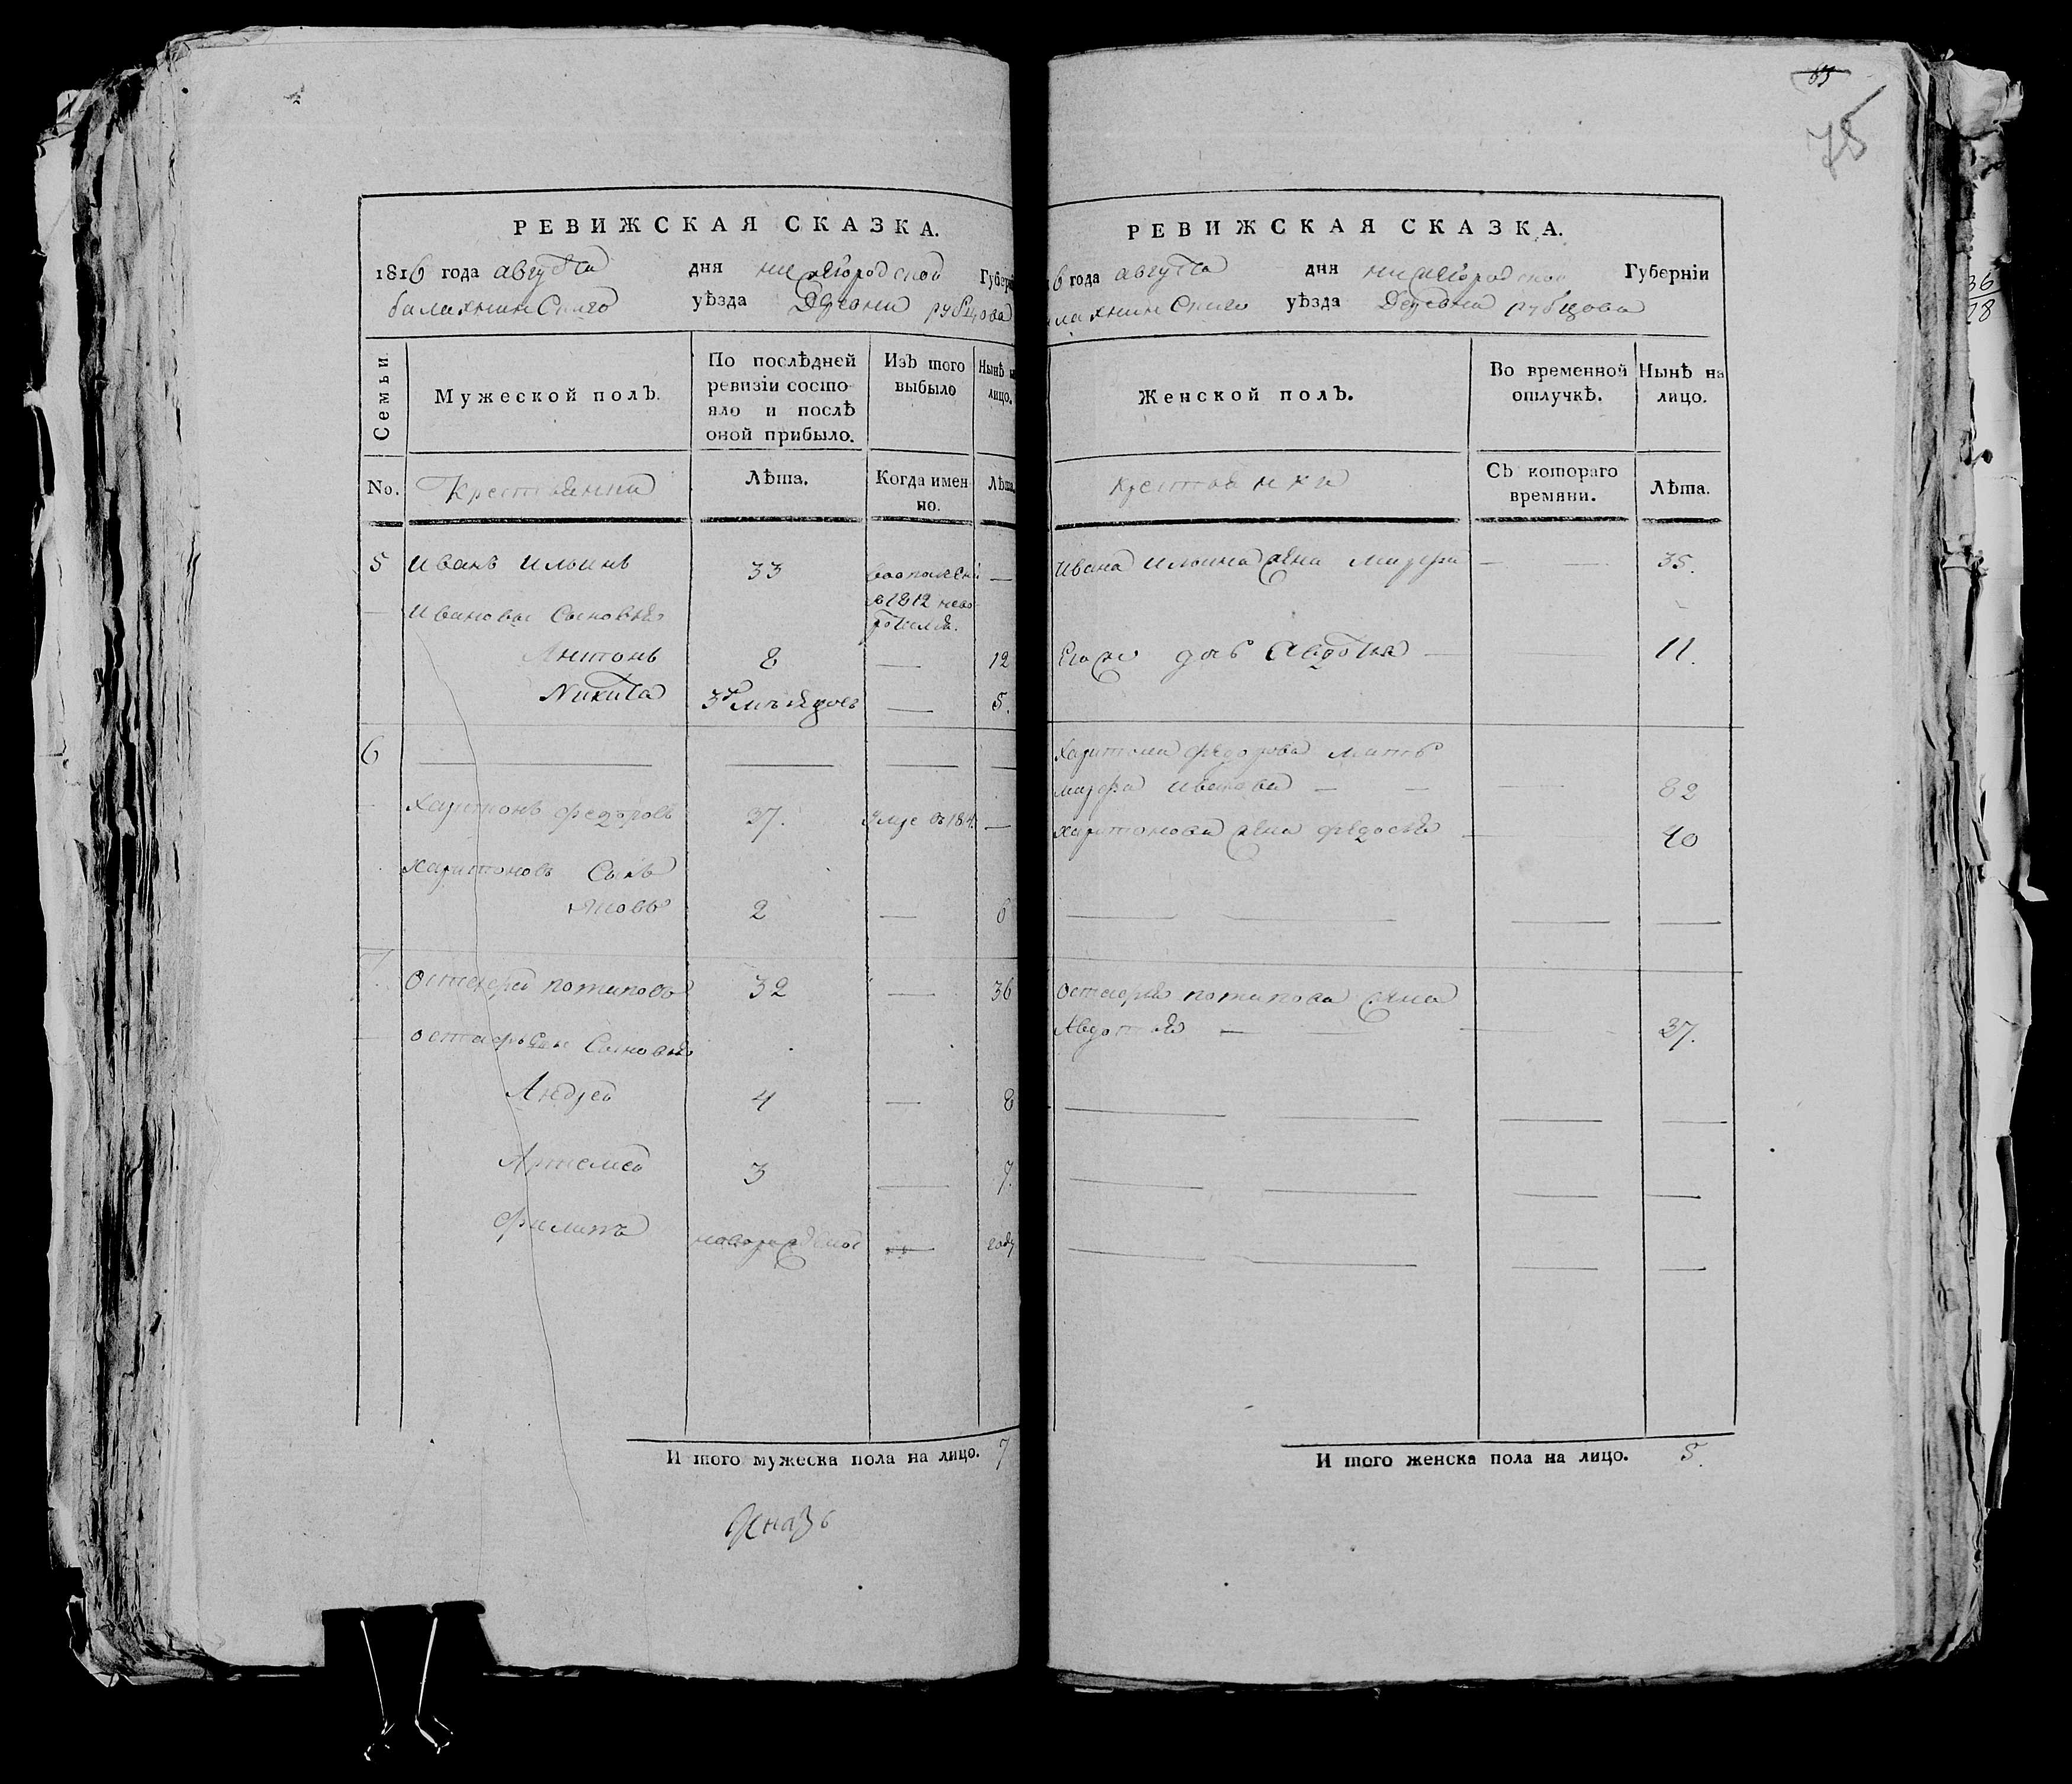 РЕВИЖСКАЯ СКАЗКА.
1816 года августа дня нижегородской Губерн
балахнинскаго уѣзда Деревни рубцова
Семьи.
Мужеской полъ.
По послѣдней ревизіи состо-
яло и послѣ
оной прибыло.
Изъ того выбыло
Нынѣ н
лицо.
No.
Крестьянии
Лѣта.
Когда имен
но.
Лѣта.
5 Иванъ Ильинъ 33 —
в 1812
— Ивановы Сыновья
Антонъ 8 — 12
Никита 3х мѣсяцовъ — 5.
6 — — — —
Харитонъ федоровъ 37. умре въ —
Харитоновъ Сынъ
2 — 6
7 Остафей потаповъ 32 — 36
Остафьевы Сыновья
Андрей 4 — 8
Артемей 3 — 7.
филипъ новорожденой — году
И того мужеска пола на лицо. 7
Князь
85
75
РЕВИЖСКАЯ СКАЗКА.
6 года августа дня нижегородской Губерніи
лахнинскаго уѣзда Деревни рубцова
Женской полъ.
Во временной
отлучкѣ.
Нынѣ на
лицо.
крестьянки
Съ котораго
времяни.
Лѣта.
Ивана Ильина жена Марфа — — 35.
Его же дочь Авдотья — — 11.
Харитона федорова мать
марфа Иванова — — — 82
Харитонова жена федосья — 40
— — — —
Остафья потапова жена
Авдотья — — — 37.
— — — —
— — — —
— — — —
И того женска пола на лицо. 5.
36
28